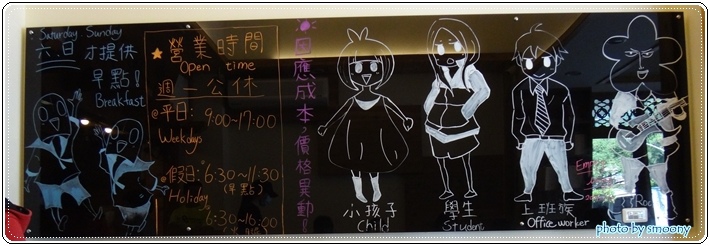 Saturday Sunday
六.日 才提供
早點!
Breakfast
★營業時間
Open time
週一公休
@平日: 9:00~17:00
Weekdays
@假日: 6:30~11:30
Holiday (早點)
6:30~16:00
因應成本,價格異動!
小孩子
Child
學生
Student
上班族
Office worker
photo by smoony